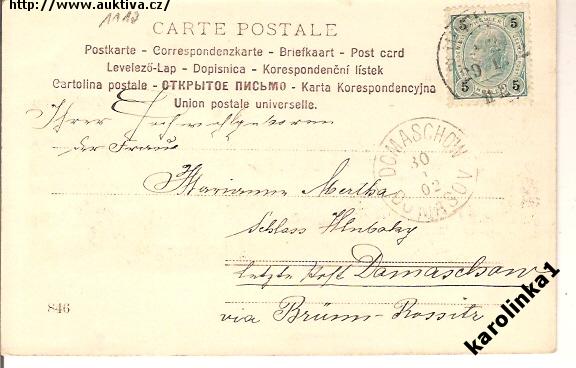 http://www.auktiva.cz/
1118
CARTE POSTALE
Postkarte - Correspondenzkarte - Briefkaart - Post card
Levelező-Lap - Dopisnica - Korespondenční lístek
Cartolina postale - ОТКРЫТОЕ ПИСЬМО - Karta Korespondencyjna
Union postale universelle.
5 5
5 5
Ihrer Hochwohlgeboren
der Frau
DOMASCHOW
30
1
02
DOMAŠOV
Marianne Mertha
Schloss Hluboky
letzte Post Domaschow
via Brünn-Rossitz
846
karolinka1